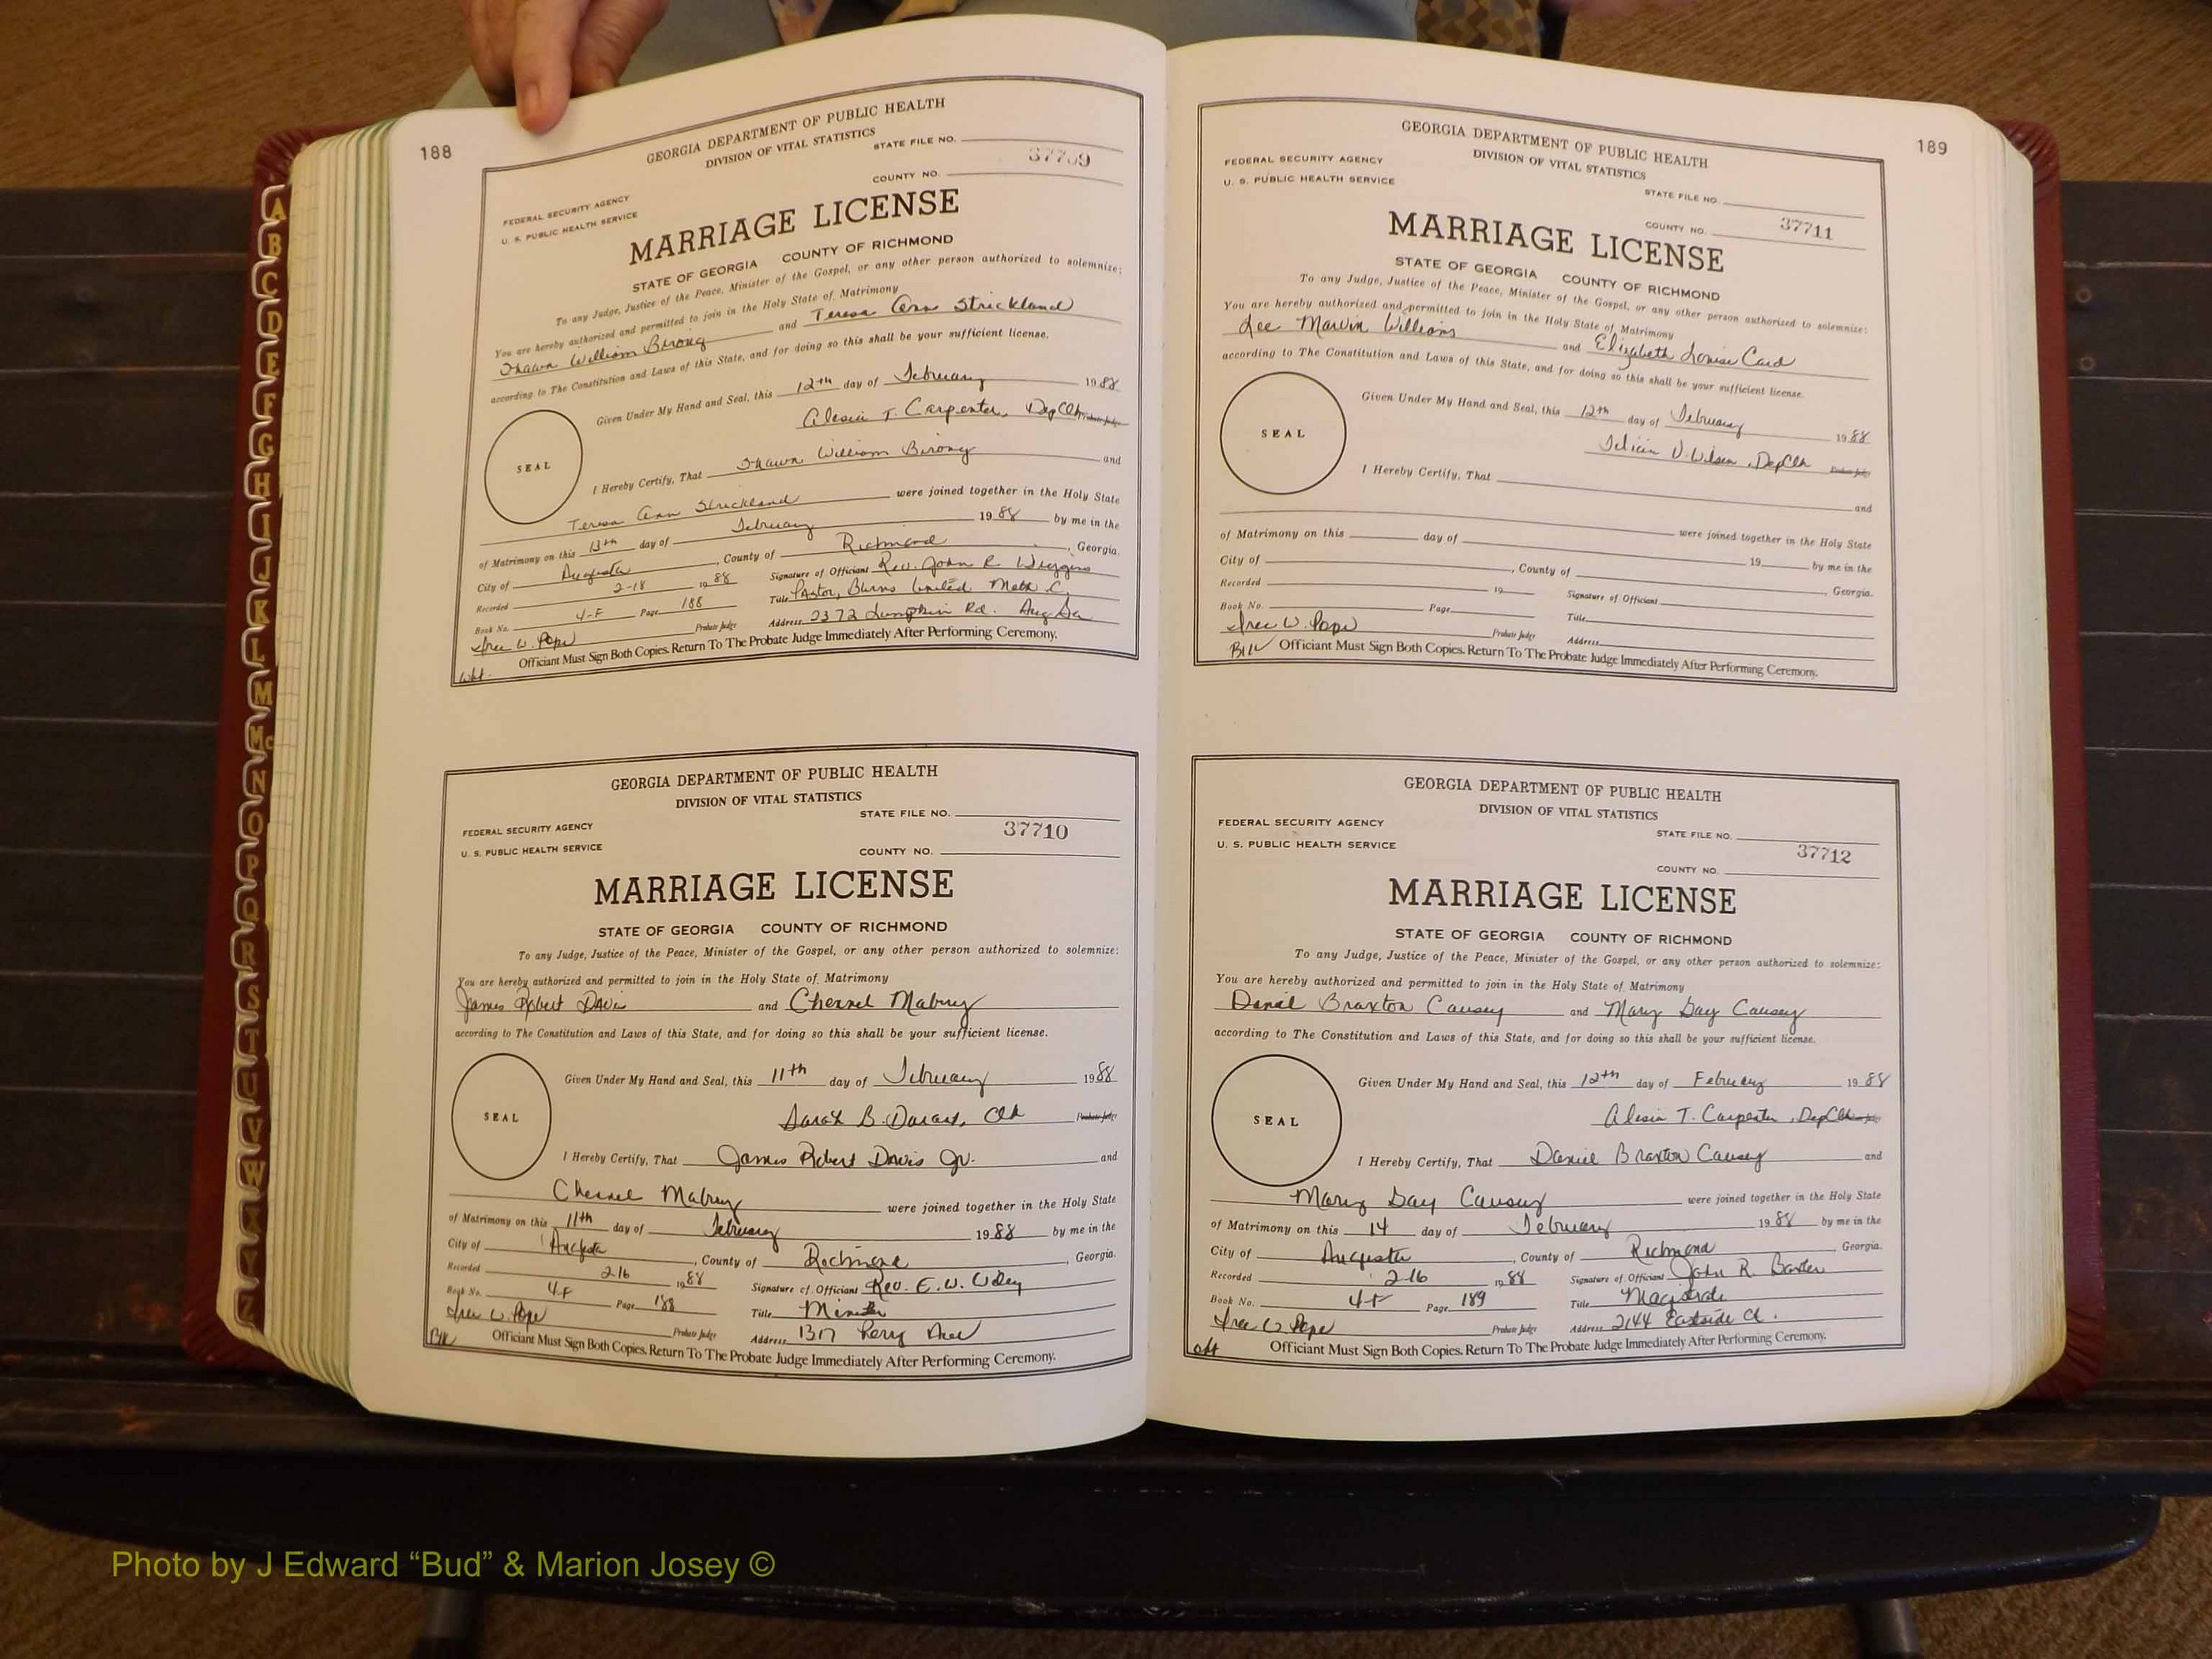 188
GEORGIA DEPARTMENT OF PUBLIC HEALTH
DIVISION OF VITAL STATISTICS
STATE FILE NO.
37709
COUNTY NO.
FEDERAL SECURITY AGENCY
U. S. PUBLIC HEALTH SERVICE
MARRIAGE LICENSE
STATE OF GEORGIA COUNTY OF RICHMOND
To any Judge, Justice of the Peace, Minister of the Gospel, or any other person authorized to solemnize:
You are hereby authorized and permitted to join in the Holy State of Matrimony
Shawn William Birong and Teresa Ann Strickland
according to The Constitution and Laws of this State, and for doing so this shall be your sufficient license.
Given Under My Hand and Seal, this 12th day of February 1988
Alesia T. Carpenter, Dep Clk Probate Judge
SEAL
I Hereby Certify, That Shawn William Birong and
Teresa Ann Strickland were joined together in the Holy State
of Matrimony on this 13th day of February 1988 by me in the
City of Augusta, County of Richmond, Georgia.
Recorded 2-18 1988 Signature of Officiant Rev. John R Wiggins
Book No. 4-F Page 188 Title Pastor, Burns United Meth C.
Probate Judge Address 2372 Lumpkin Rd. Aug Ga
W. Pope
Officiant Must Sign Both Copies. Return To The Probate Judge Immediately After Performing Ceremony.
GEORGIA DEPARTMENT OF PUBLIC HEALTH
DIVISION OF VITAL STATISTICS
STATE FILE NO.
37710
FEDERAL SECURITY AGENCY
U. S. PUBLIC HEALTH SERVICE
COUNTY NO.
MARRIAGE LICENSE
STATE OF GEORGIA COUNTY OF RICHMOND
To any Judge, Justice of the Peace, Minister of the Gospel, or any other person authorized to solemnize:
You are hereby authorized and permitted to join in the Holy State of Matrimony
James Robert Davis and Chennel Mabry
according to The Constitution and Laws of this State, and for doing so this shall be your sufficient license.
Given Under My Hand and Seal, this 11th day of February 1988
Sarah B. Durant, Clk Probate Judge
SEAL
I Hereby Certify, That James Robert Davis Jr. and
Chennel Mabry were joined together in the Holy State
of Matrimony on this 11th day of February 1988 by me in the
City of Augusta, County of Richmond, Georgia.
Recorded 2-16 1988 Signature of Officiant Rev. E. W.
Book No. 4-F Page 188 Title Minister
W. Pope Probate Judge Address 1317 Perry Ave
Officiant Must Sign Both Copies. Return To The Probate Judge Immediately After Performing Ceremony.
189
GEORGIA DEPARTMENT OF PUBLIC HEALTH
DIVISION OF VITAL STATISTICS
FEDERAL SECURITY AGENCY
U. S. PUBLIC HEALTH SERVICE
STATE FILE NO.
37711
COUNTY NO.
MARRIAGE LICENSE
STATE OF GEORGIA COUNTY OF RICHMOND
To any Judge, Justice of the Peace, Minister of the Gospel, or any other person authorized to solemnize:
You are hereby authorized and permitted to join in the Holy State of Matrimony
Lee Marvin Williams and Elizabeth Louise Card
according to The Constitution and Laws of this State, and for doing so this shall be your sufficient license.
Given Under My Hand and Seal, this 12th day of February 1988
Felicia V. Wilson, Dep Clk Probate Judge
SEAL
I Hereby Certify, That and
were joined together in the Holy State
of Matrimony on this day of 19 by me in the
City of , County of , Georgia.
Recorded 19 Signature of Officiant
Book No. Page Title
W. Pope Probate Judge Address
Officiant Must Sign Both Copies. Return To The Probate Judge Immediately After Performing Ceremony.
GEORGIA DEPARTMENT OF PUBLIC HEALTH
DIVISION OF VITAL STATISTICS
FEDERAL SECURITY AGENCY
U. S. PUBLIC HEALTH SERVICE
STATE FILE NO.
37712
COUNTY NO.
MARRIAGE LICENSE
STATE OF GEORGIA COUNTY OF RICHMOND
To any Judge, Justice of the Peace, Minister of the Gospel, or any other person authorized to solemnize:
You are hereby authorized and permitted to join in the Holy State of Matrimony
Daniel Braxton Causey and Mary Day Causey
according to The Constitution and Laws of this State, and for doing so this shall be your sufficient license.
Given Under My Hand and Seal, this 12th day of February 1988
Alesia T. Carpenter, Dep Clk Probate Judge
SEAL
I Hereby Certify, That Daniel Braxton Causey and
Mary Day Causey were joined together in the Holy State
of Matrimony on this 14 day of February 1988 by me in the
City of Augusta, County of Richmond, Georgia.
Recorded 2-16 1988 Signature of Officiant John R. Baxter
Book No. 4-F Page 189 Title Magistrate
W. Pope Probate Judge Address 2144 Eastside Ct.
Officiant Must Sign Both Copies. Return To The Probate Judge Immediately After Performing Ceremony.
A
B
C
D
E
F
G
H
I
J
K
L
M
Mc
N
O
P
Q
R
S
T
U
V
W
X
Y
Z
Photo by J Edward “Bud” & Marion Josey ©